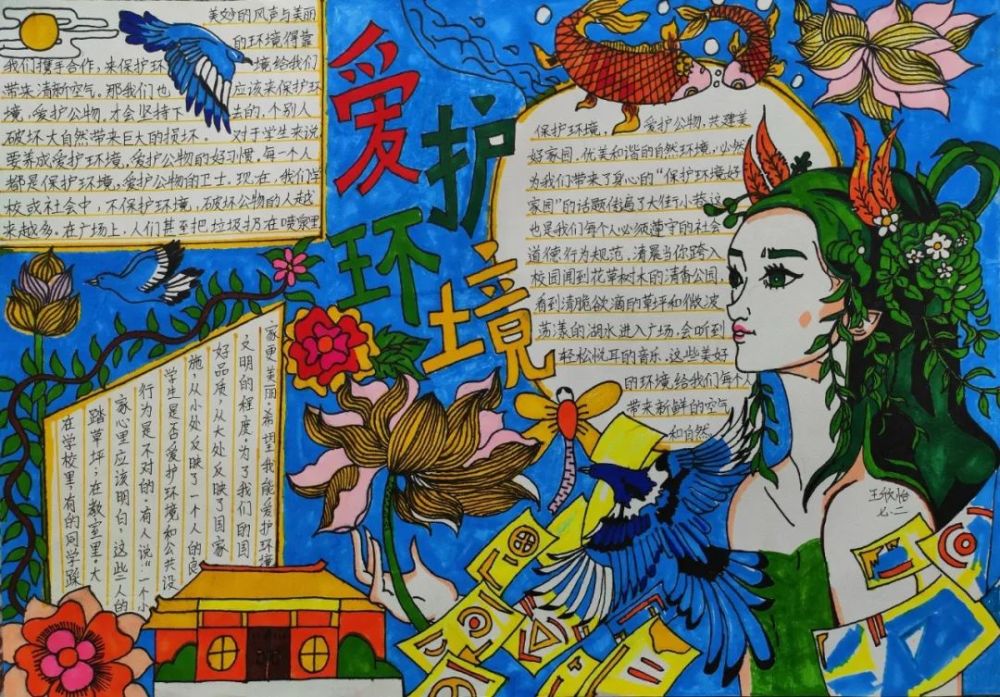 爱护环境
美妙的风声与美丽
的环境得靠
我们携手合作，来保护环境给我们
带来清新空气。那我们也应该来保护环
境，爱护公物，才会坚持下去的，个别人
破坏大自然带来巨大的损坏，对于学生来说
要养成爱护环境，爱护公物的好习惯，每一个人
都是保护环境，爱护公物的卫士。现在，我们学
校或社会中，不保护环境，破坏公物的人越
来越多。在广场上，人们甚至把垃圾扔在喷泉里
保护环境，爱护公物，共建美
好家园，优美和谐的自然环境，必然
为我们带来了身心的“保护环境好
家园”的话题传遍了大街小巷这
也是我们每个人必须遵守的社会
道德行为规范，清晨当你跨入
校园闻到花草树木的清香公园，
看到清脆欲滴的草坪和微波
荡漾的湖水进入广场，会听到
轻松悦耳的音乐，这些美好
的环境给我们每个人
带来新鲜的空气
和自然。
在学校里，有的同学踩
踏草坪，在教室里，大
家心里应该明白，这些人的
行为是不对的，有人说：“一个小
学生是否爱护环境和公共设
施，从小处反映了一个人的良
好品质，从大处反映了国家
文明的程度，为了我们的国
家更美丽，希望我能爱护环境
王欣怡
七.二